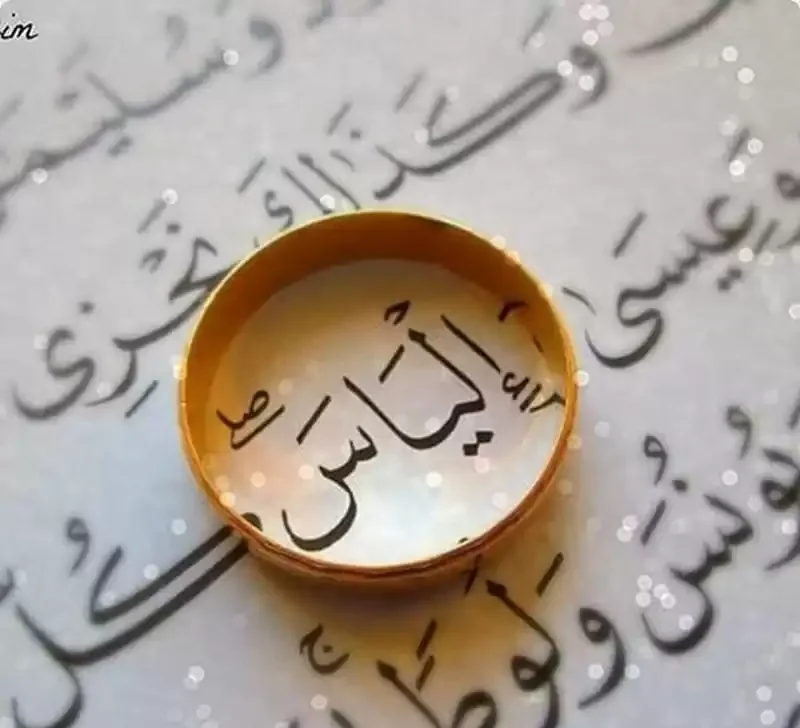 im
وَسُلَيْمَ
وَكَذَٰلِكَ نَجْزِى
وَعِيسَىٰ إِلْيَاسَ ۖ كُلٌّ
يُونُسَ وَلُوطًا ۚ